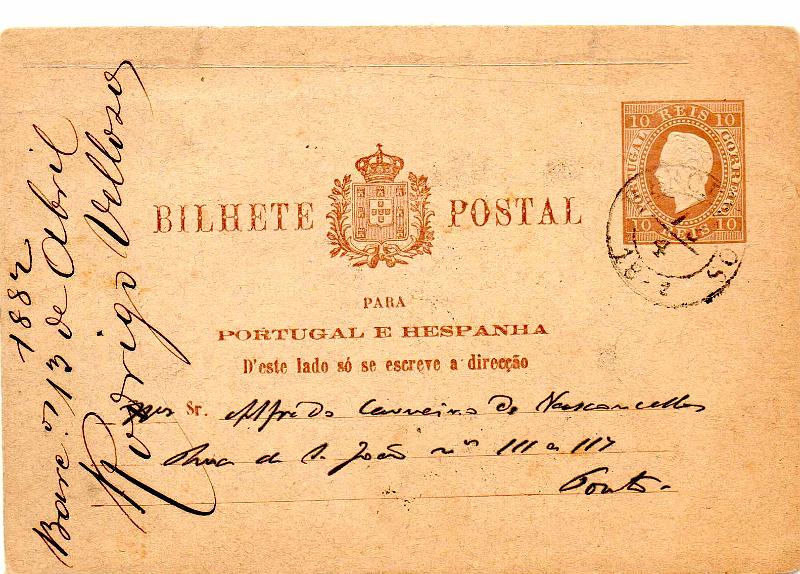 1882
Barc.os 13 de Abril
Rodrigo Velloso
BILHETE POSTAL
10 REIS 10
PORTUGAL
CORREIO
10 REIS 10
PARA
PORTUGAL E HESPANHA
D'este lado só se escreve a direcção
Sr. Alfredo Carneiro de Vasconcellos
Rua de S. João nos 111 a 117
Porto.